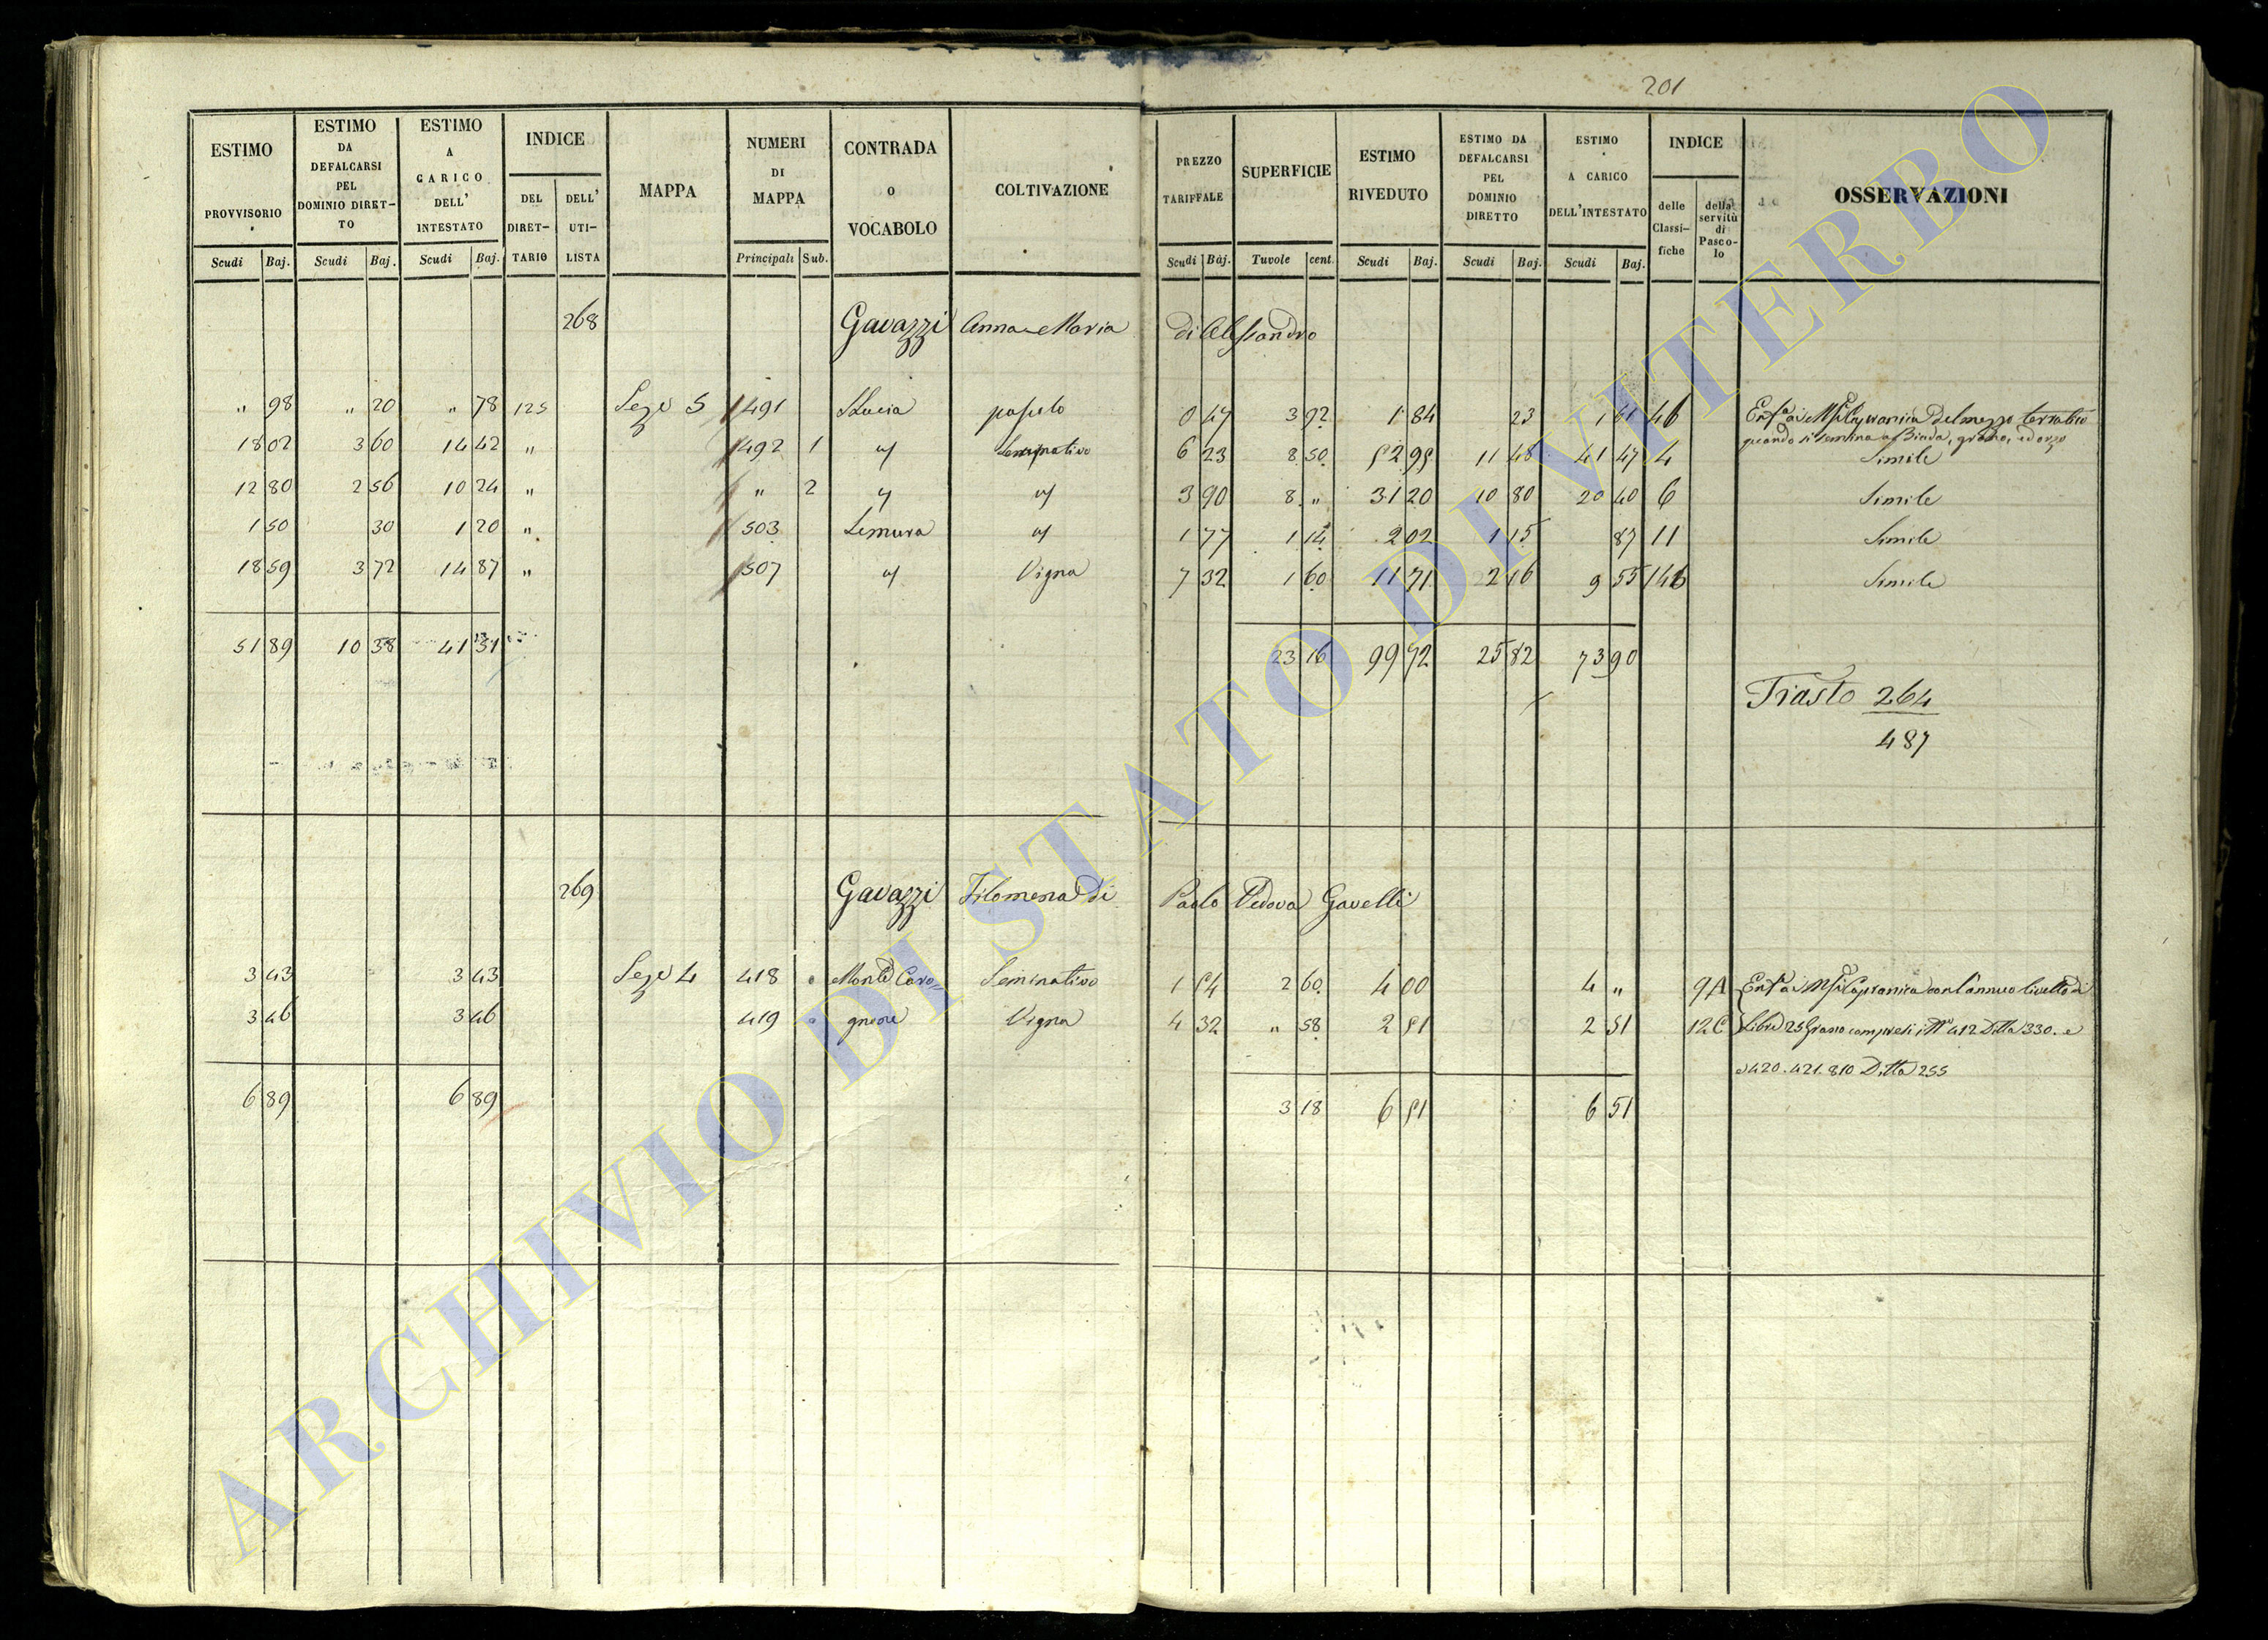 201
ESTIMO PROVVISORIO
ESTIMO DA DEFALCARSI PEL DOMINIO DIRETTO
ESTIMO A CARICO DELL' INTESTATO
INDICE
DEL DIRETTARIO
DELL' UTILISTA
MAPPA
NUMERI DI MAPPA
CONTRADA o VOCABOLO
COLTIVAZIONE
PREZZO TARIFFALE
SUPERFICIE
ESTIMO RIVEDUTO
ESTIMO DA DEFALCARSI PEL DOMINIO DIRETTO
ESTIMO A CARICO DELL'INTESTATO
INDICE
delle Classifiche
della servitù di Pascolo
OSSERVAZIONI
Scudi Baj. Scudi Baj. Scudi Baj. Principali Sub. Scudi Baj. Tavole cent. Scudi Baj. Scudi Baj. Scudi Baj.
268 Gavazzi Anna Maria di Alessandro
" 98 " 20 " 78 125 Seze 5 1491 S Lucia pascolo 0 47 3 92 1 84 23 1 61 46 Enfa Capranica del mezzo terratico
quando si semina a Biada, grano, ed orzo
18 02 3 60 14 42 " 1492 1 " Seminativo 6 23 8 50 52 95 11 48 41 47 4 Simile
12 80 2 56 10 24 " " 2 " " 3 90 8 " 31 20 10 80 20 40 6 Simile
1 50 30 1 20 " 1503 Limura " 1 77 1 14 2 02 1 15 87 11 Simile
18 59 3 72 14 87 " 1507 " Vigna 7 32 1 60 11 71 2 16 9 55 146 Simile
51 89 10 38 41 51 23 16 99 72 25 82 73 90
Trasto 264
487
269 Gavazzi Filomena di Paolo Vedova Gavelli
3 43 3 43 Seze 4 418 Monte Caro= Seminativo 1 54 2 60 4 00 4 " 9A Enfa Capranica con l'annuo livello di
3 46 3 46 419 gnone Vigna 4 32 " 58 2 51 2 51 12C Libre 25 Grano compresi i Ni 412 Ditta 330. e
420. 421. 810 Ditta 255
6 89 6 89 3 18 6 51 6 51
ARCHIVIO DI STATO DI VITERBO